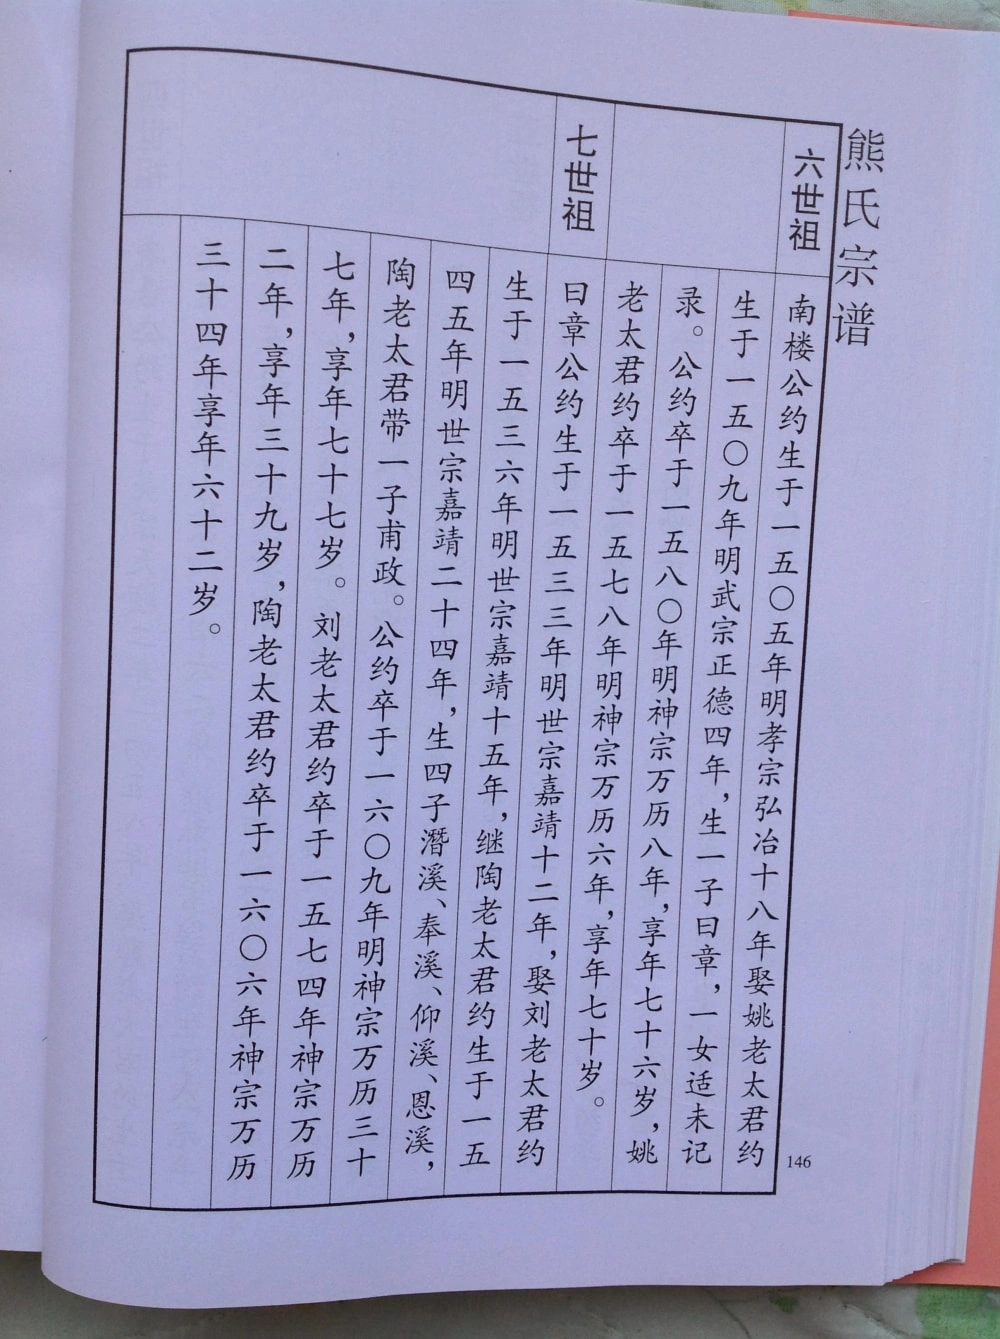 熊氏宗谱
六世祖
南楼公约生于一五〇五年明孝宗弘冶十八年娶姚老太君约
生于一五〇九年明武宗正德四年，生一子曰章，一女适未记
录。公约卒于一五八〇年明神宗万历八年，享年七十六岁，姚
老太君约卒于一五七八年明神宗万历六年，享年七十岁。
七世祖
曰章公约生于一五三三年明世宗嘉靖十二年，娶刘老太君约
生于一五三六年明世宗嘉靖十五年，继陶老太君约生于一五
四五年明世宗嘉靖二十四年，生四子潛溪、奉溪、仰溪、恩溪，
陶老太君带一子甫政。公约卒于一六〇九年明神宗万历三十
七年，享年七十七岁。刘老太君约卒于一五七四年神宗万历
二年，享年三十九岁，陶老太君约卒于一六〇六年神宗万历
三十四年享年六十二岁。
146